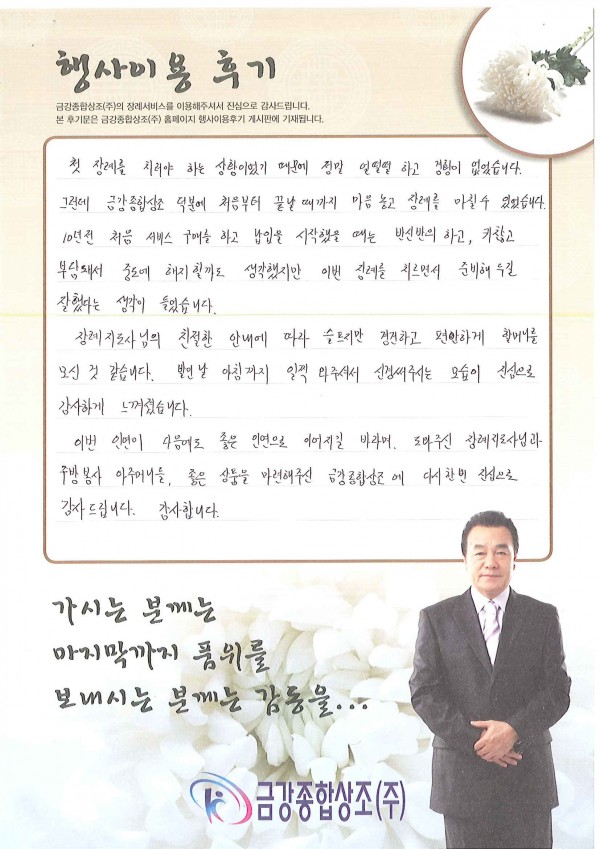 행사이용 후기
금강종합상조(주)의 장례서비스를 이용해주셔서 진심으로 감사드립니다.
본 후기문은 금강종합상조(주) 홈페이지 행사이용후기 게시판에 기재됩니다.
첫 장례를 치러야 하는 상황이었기 때문에 정말 얼떨떨 하고 경황이 없었습니다.
그런데 금강종합상조 덕분에 처음부터 끝날 때까지 마음 놓고 장례를 마칠 수 있었습니다.
10년전 처음 서비스 구매를 하고 납입을 시작했을 때는 반신반의 하고, 귀찮고
부담돼서 중도에 해지할까도 생각했지만 이번 장례를 치르면서 준비해 두길
잘했다는 생각이 들었습니다.
장례지도사님의 친절한 안내에 따라 슬프지만 경건하고 편안하게 할머니를
모신 것 같습니다. 발인날 아침까지 일찍 와주셔서 신경써주시는 모습이 진심으로
감사하게 느껴졌습니다.
이번 인연이 다음에도 좋은 인연으로 이어지길 바라며, 도와주신 장례지도사님과
주방봉사 아주머니들, 좋은 상품을 마련해주신 금강종합상조에 다시한번 진심으로
감사드립니다. 감사합니다.
가시는 분께는
마지막까지 품위를
보내시는 분께는 감동을...
금강종합상조(주)